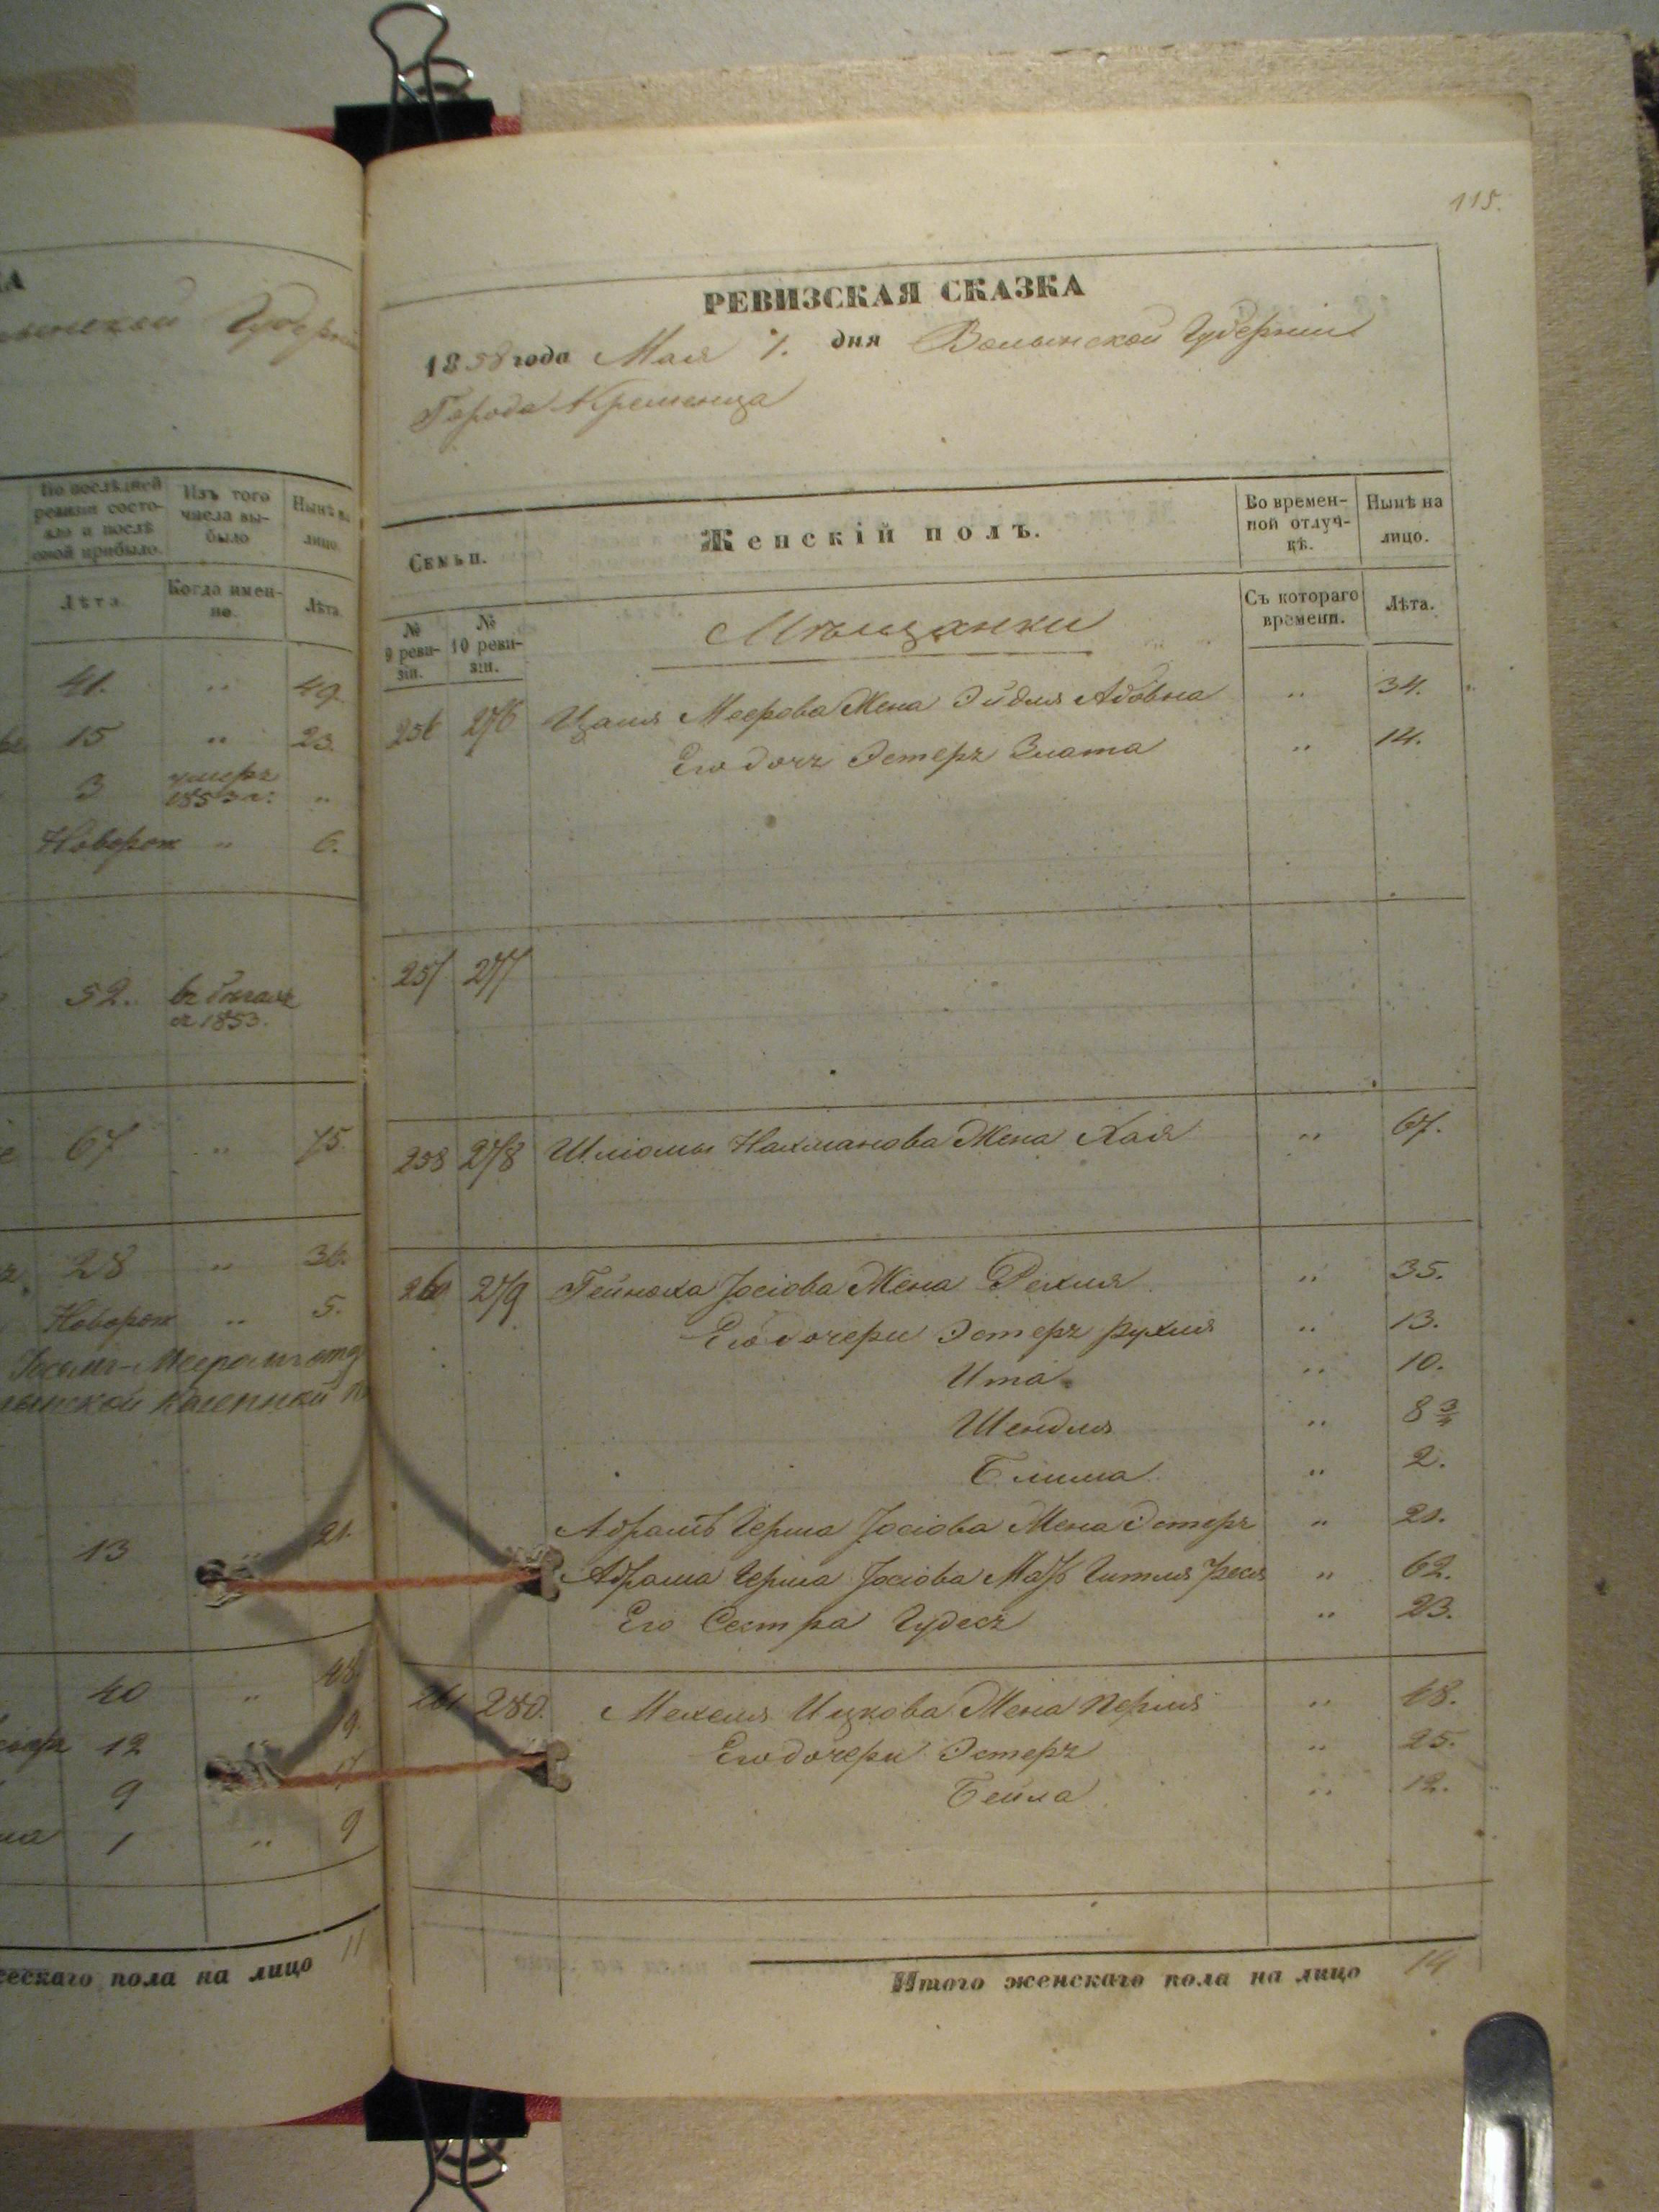 КА
Губерніи
По послѣдней ревизіи состояло и послѣ оной прибыло.
Изъ того числа выбыло
Нынѣ на лицо.
Лѣта.
Когда именно.
Лѣта.
41. " 49.
15 " 23.
3 умеръ 1853 г: "
Новорож " 6.
52. въ бѣгахъ съ 1853.
67 " 75.
28 " 36.
Новорож " 5.
казенной
13 21.
40 " 48
12 9.
9 17
1 " 9
пола на лицо 11
115.
РЕВИЗСКАЯ СКАЗКА
1858 года Мая 1. дня Волынской Губерніи
Города Кременца
Семьи.
Женскій полъ.
Во временной отлучкѣ.
Нынѣ на лицо.
№ 9 ревизіи.
№ 10 ревизіи.
Мѣщанки
Съ котораго времени.
Лѣта.
256 276 Цаля Меерова Жена Эйдля Абовна " 34.
Его дочь Эстеръ Злата " 14.
257 277
258 278 Шліомы Нахманова Жена Хая " 67.
260 279 Гейноха Іосіова Жена Рехля " 35.
Его дочери Эстеръ Рухля " 13.
Ита " 10.
Шендля " 8 3/4
Блима " 2.
Абрамъ Герша Іосіова Жена Эстеръ " 21.
Абрама Герша Іосіова Мать Гитля Фрейда " 62.
Его Сестра Гудесъ " 23.
261 280. Мехеля Ицкова Жена Перля " 48.
Его дочери Эстеръ " 25.
Бейла " 12.
Итого женскаго пола на лицо 14